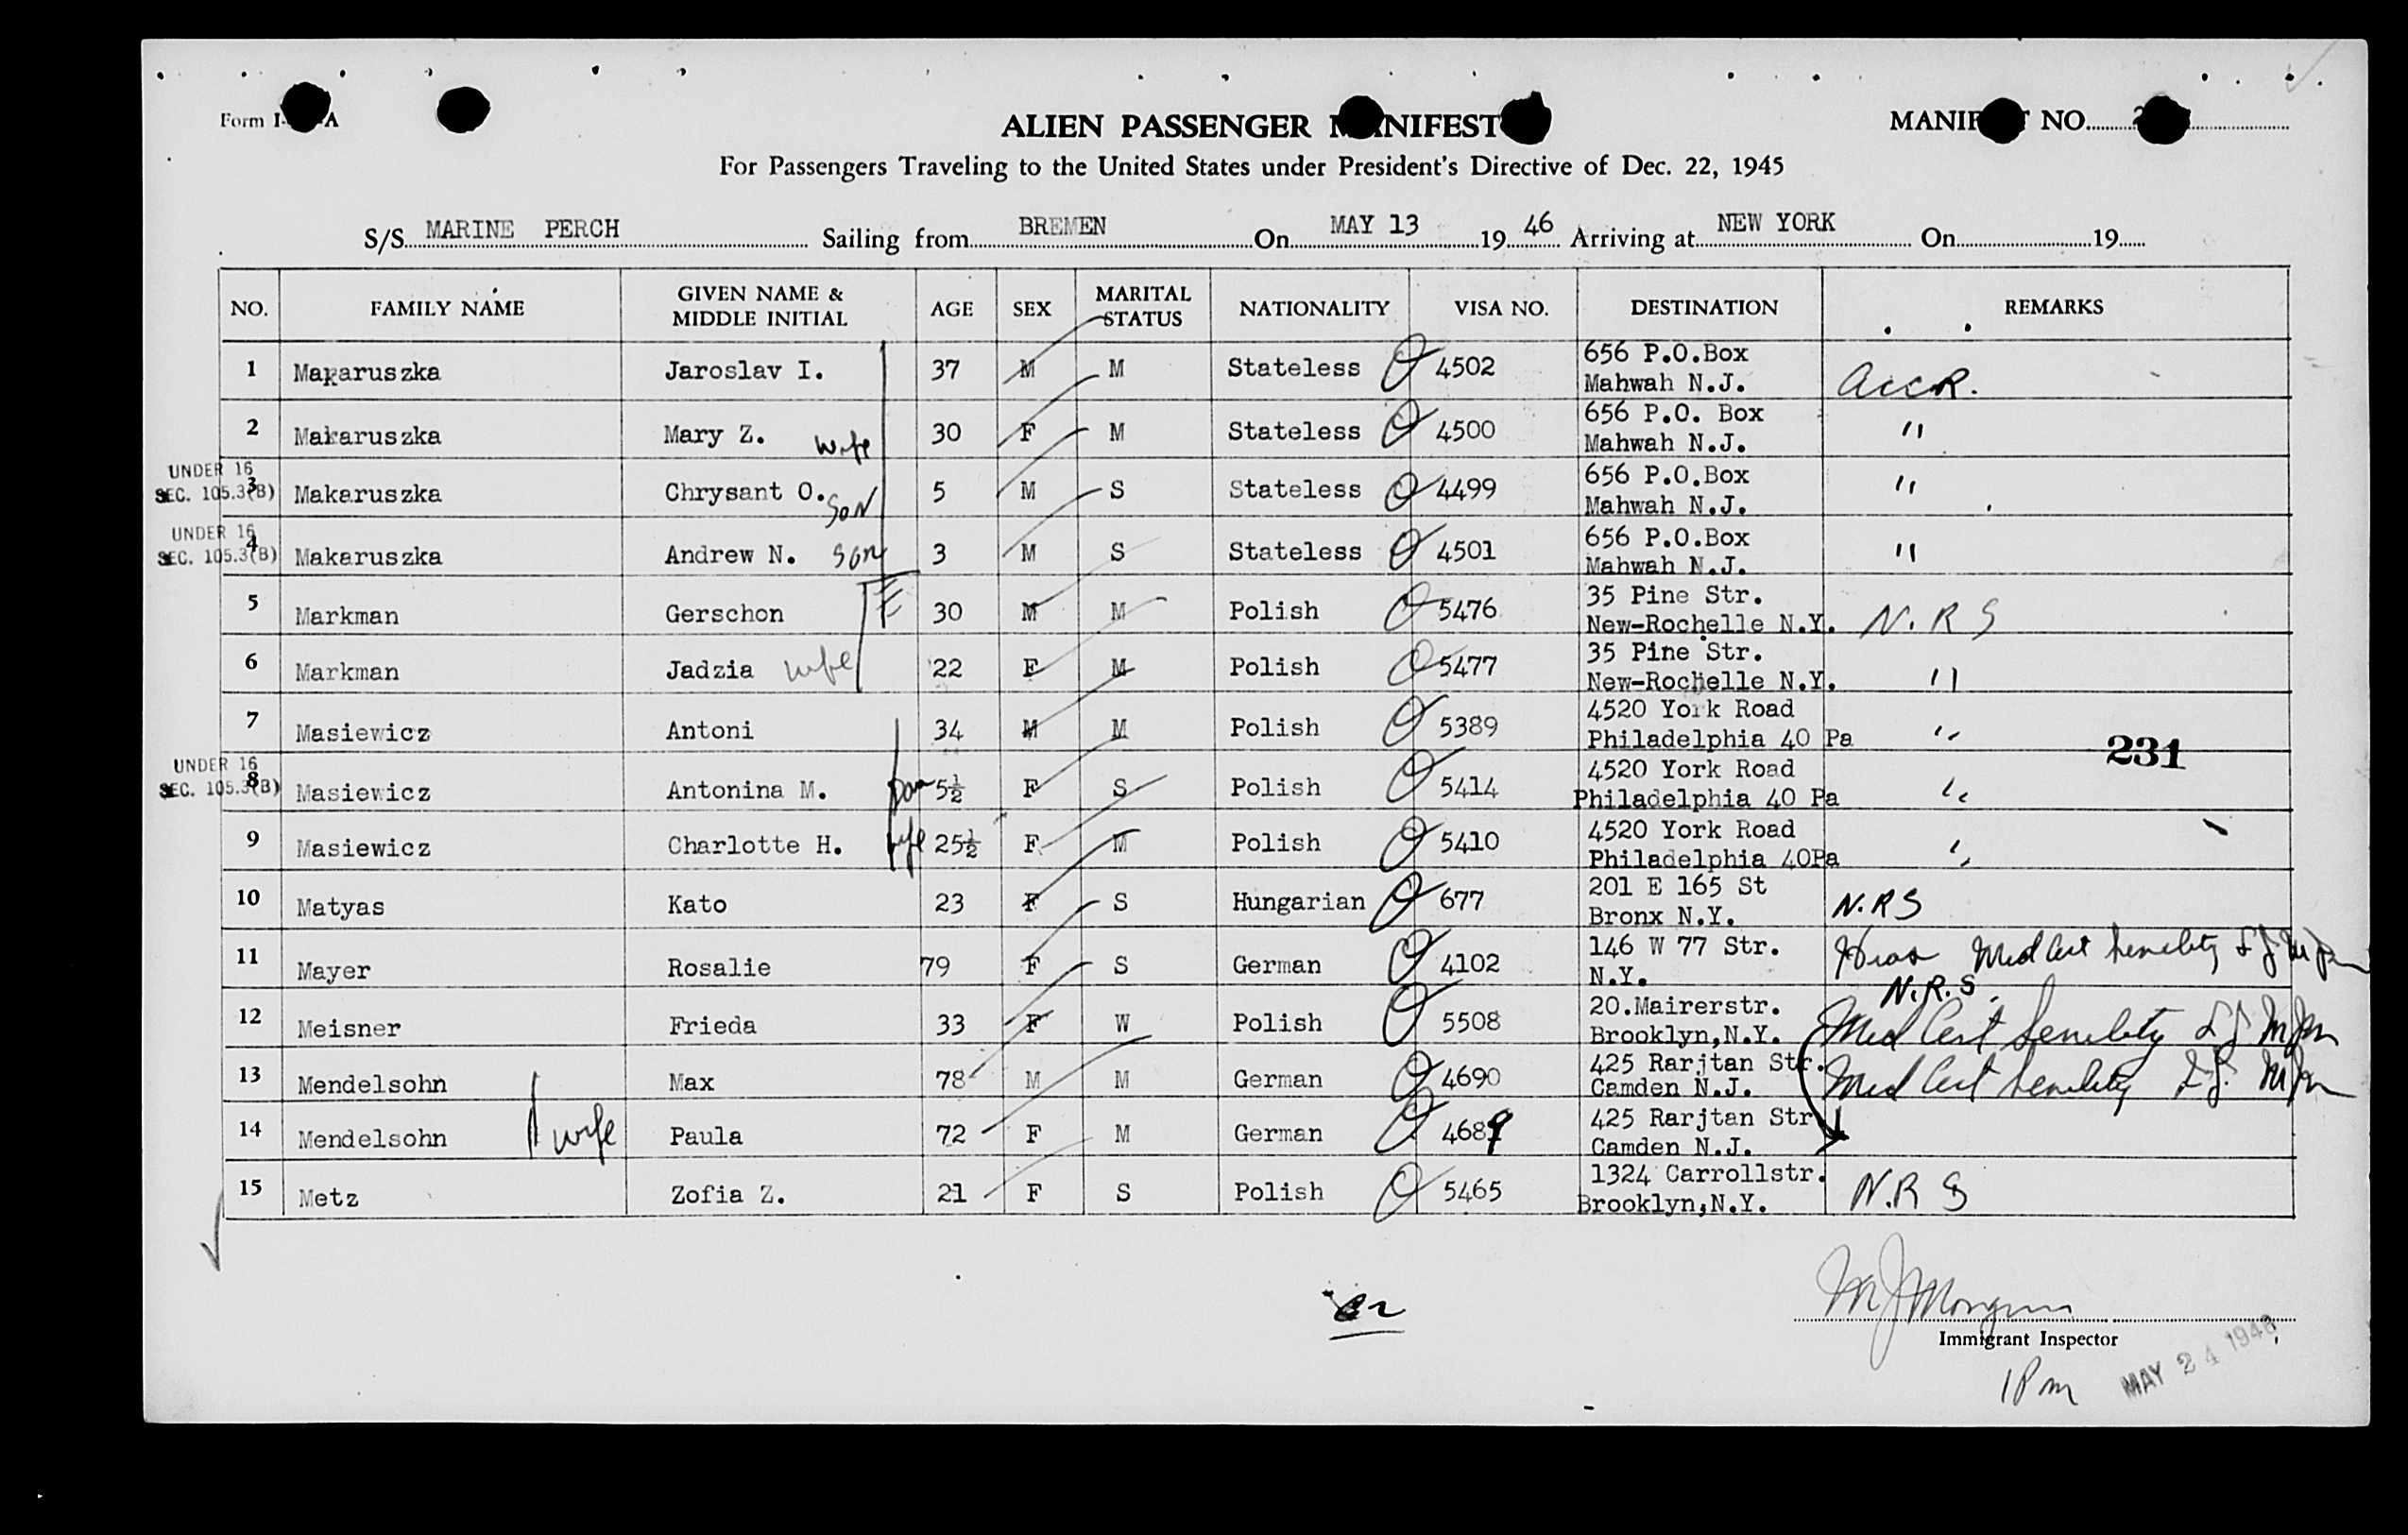 Form I- A
ALIEN PASSENGER MANIFEST
MANIFEST NO.
For Passengers Traveling to the United States under President's Directive of Dec. 22, 1945
S/S MARINE PERCH Sailing from BREMEN On MAY 13 19 46 Arriving at NEW YORK On 19
NO. FAMILY NAME GIVEN NAME & MIDDLE INITIAL AGE SEX MARITAL STATUS NATIONALITY VISA NO. DESTINATION REMARKS
1 Makaruszka Jaroslav I. 37 M M Stateless 4502 656 P.O.Box
Mahwah N.J. ACCR.
2 Makaruszka Mary Z. wife 30 F M Stateless 4500 656 P.O. Box
Mahwah N.J. "
UNDER 16
SEC. 105.3(B)
3 Makaruszka Chrysant O. SON 5 M S Stateless 4499 656 P.O.Box
Mahwah N.J. "
UNDER 16
SEC. 105.3(B)
4 Makaruszka Andrew N. son 3 M S Stateless 4501 656 P.O.Box
Mahwah N.J. "
5 Markman Gerschon 30 M M Polish 5476 35 Pine Str.
New-Rochelle N.Y. N.R S
6 Markman Jadzia wife 22 F M Polish 5477 35 Pine Str.
New-Rochelle N.Y. "
7 Masiewicz Antoni 34 M M Polish 5389 4520 York Road
Philadelphia 40 Pa "
231
UNDER 16
SEC. 105.3(B)
8 Masiewicz Antonina M. 5½ F S Polish 5414 4520 York Road
Philadelphia 40 Pa "
9 Masiewicz Charlotte H. wife 25½ F M Polish 5410 4520 York Road
Philadelphia 40Pa "
10 Matyas Kato 23 F S Hungarian 677 201 E 165 St
Bronx N.Y. N.R S
11 Mayer Rosalie 79 F S German 4102 146 W 77 Str.
N.Y. Hias Med Cert Senility
12 Meisner Frieda 33 F W Polish 5508 20.Mairerstr.
Brooklyn,N.Y. N.R.S. Med Cert Senility
13 Mendelsohn Max 78 M M German 4690 425 Rarjtan Str.
Camden N.J. Med Cert Senility
14 Mendelsohn wife Paula 72 F M German 4689 425 Rarjtan Str
Camden N.J.
15 Metz Zofia Z. 21 F S Polish 5465 1324 Carrollstr.
Brooklyn,N.Y. N.R S
Immigrant Inspector
1 Pm MAY 24 1946